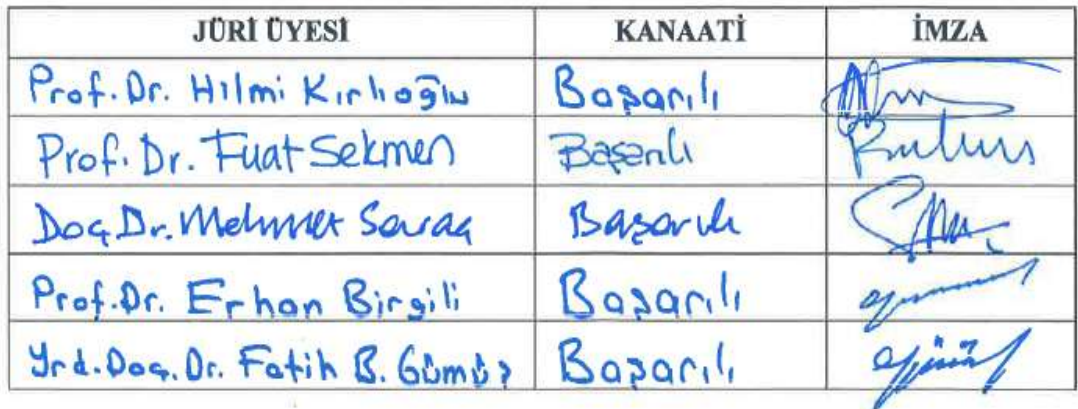 JÜRİ ÜYESİ KANAATİ İMZA
Prof. Dr. Hilmi Kırlıoğlu Başarılı
Prof. Dr. Fuat Sekmen Başarılı
Doç. Dr. Mehmet Saraç Başarılı
Prof. Dr. Erhan Birgili Başarılı
Yrd. Doç. Dr. Fatih B. Gümüş Başarılı